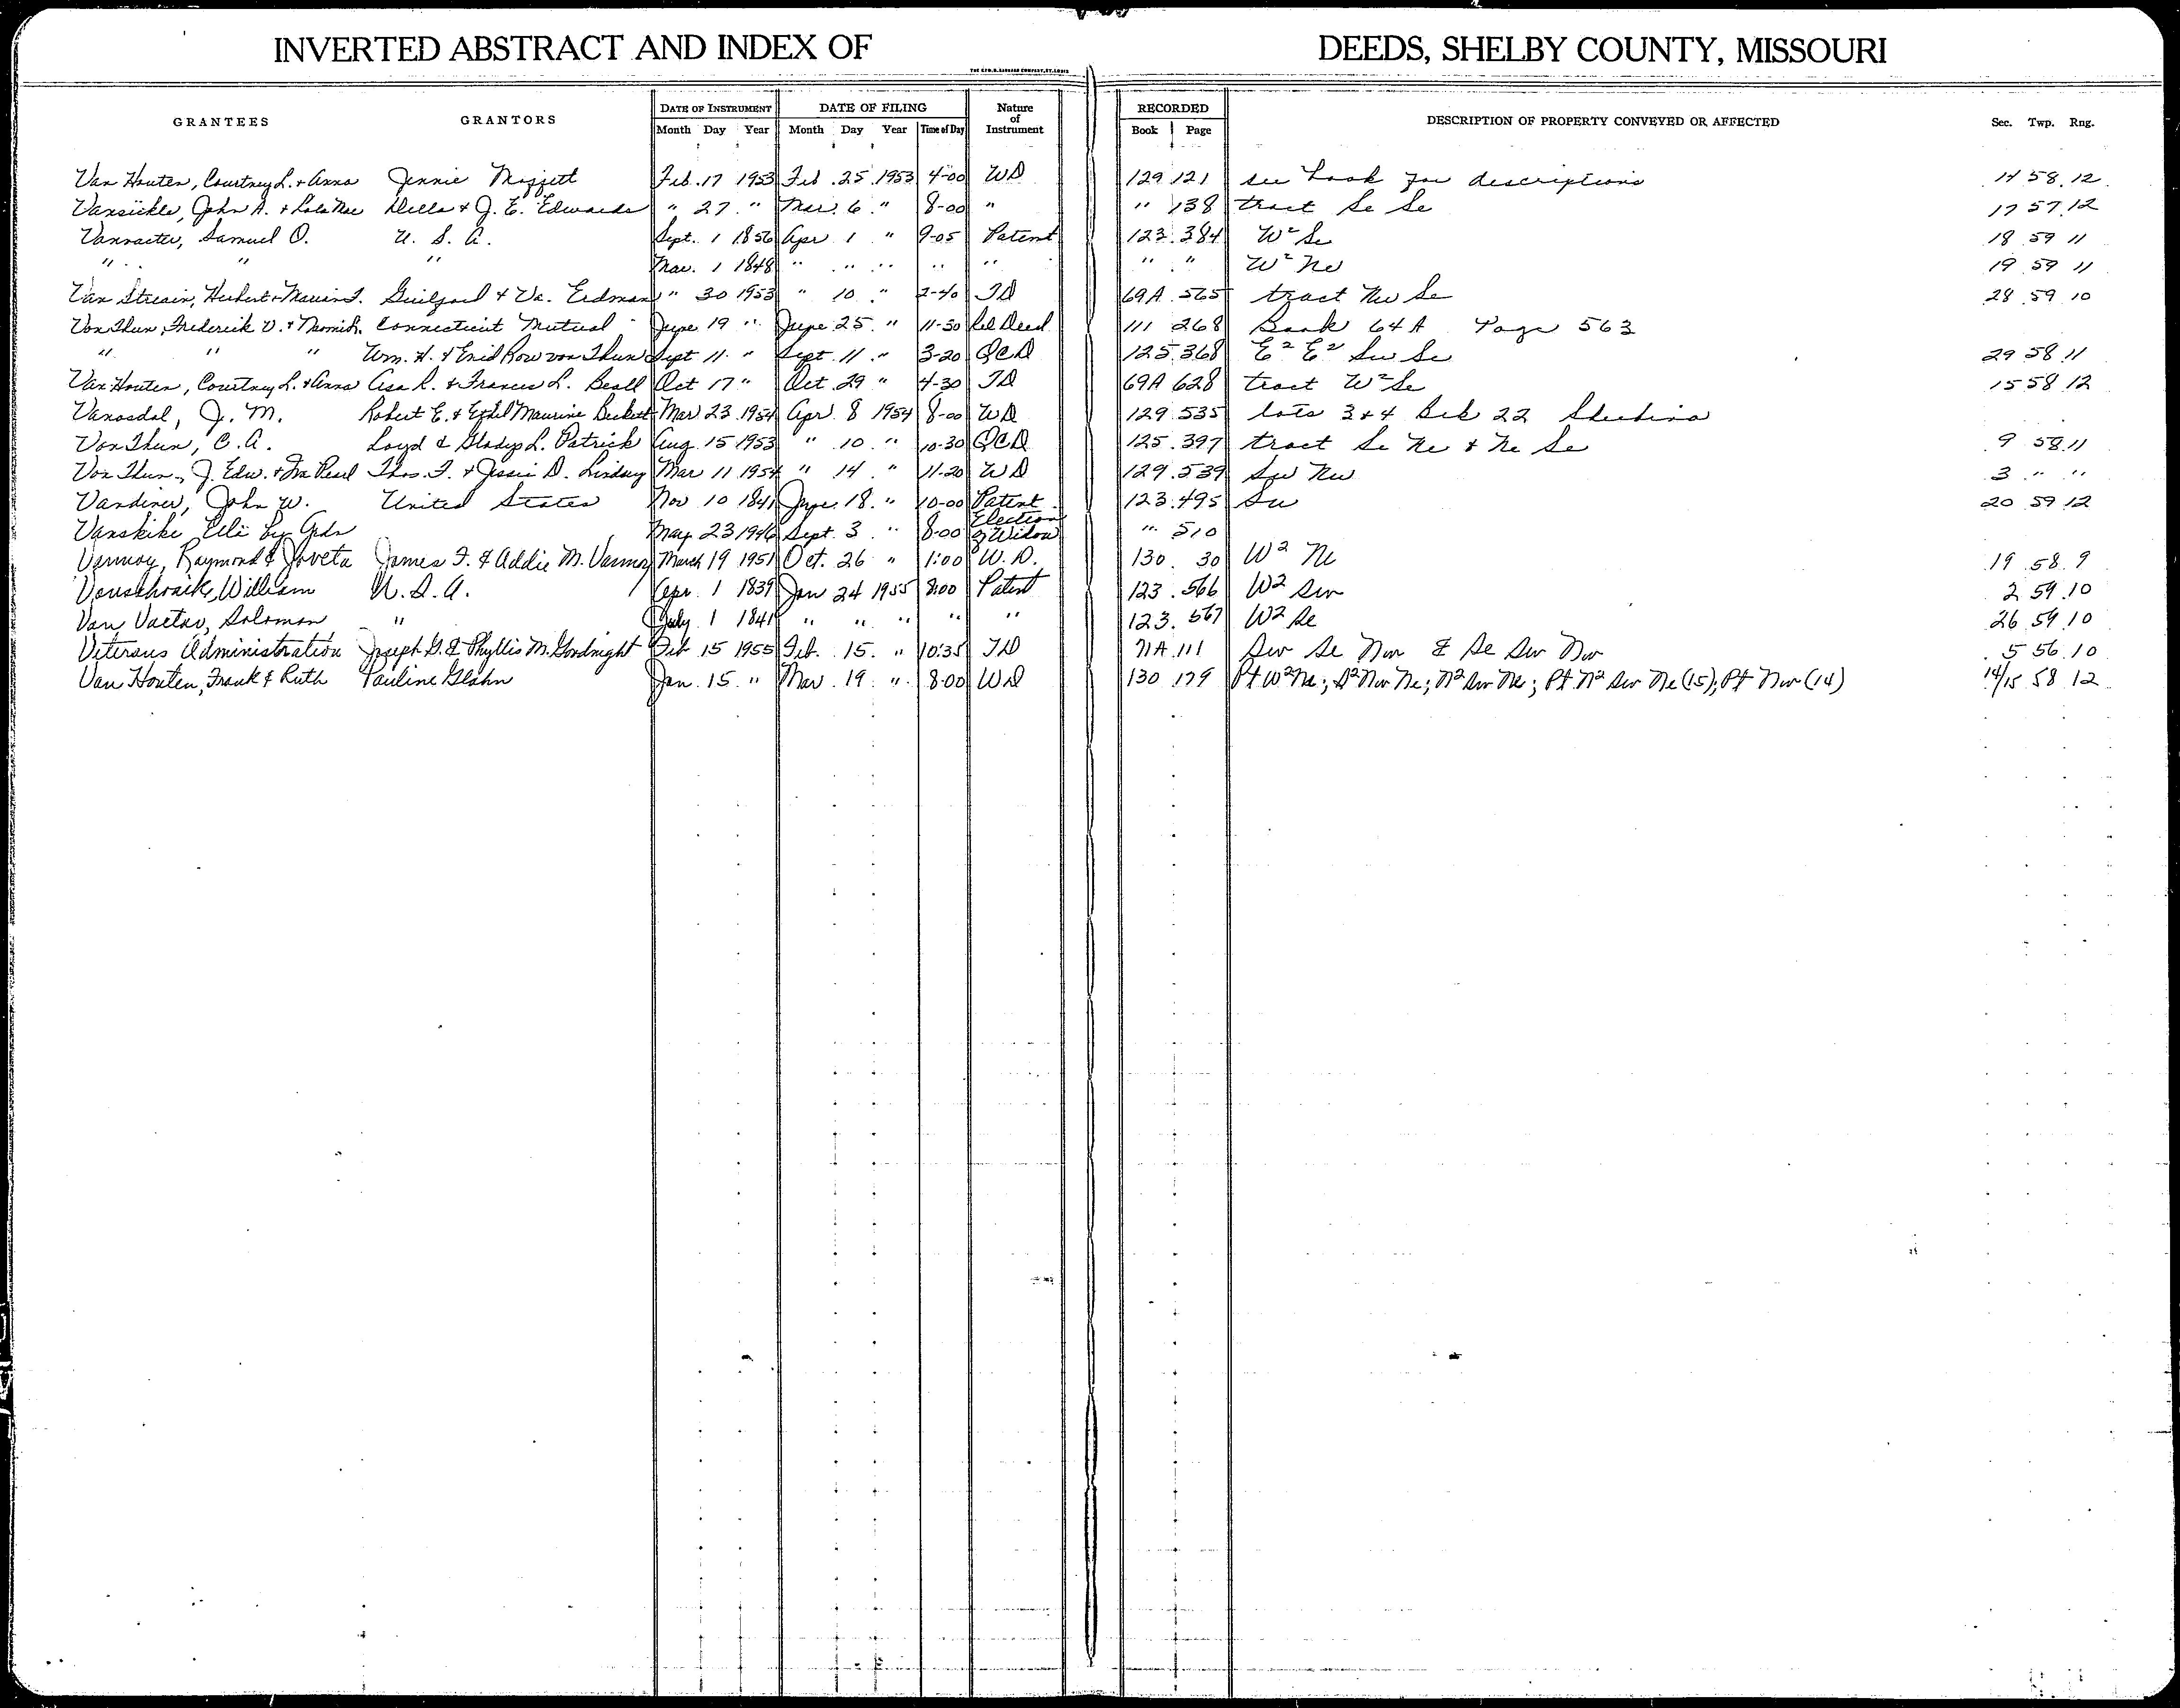 INVERTED ABSTRACT AND INDEX OF DEEDS, SHELBY COUNTY, MISSOURI
GRANTEES GRANTORS DATE OF INSTRUMENT Month Day Year DATE OF FILING Month Day Year Time of Day Nature of Instrument RECORDED Book Page DESCRIPTION OF PROPERTY CONVEYED OR AFFECTED Sec. Twp. Rng.
Van Houten, Courtney L. & Anna Jennie Feb. 17 1953 Feb. 25 1953 4-00 WD 129 121 see book for descriptions 14 58 12
Vansickle, John A. & Lola Mae Della & J. E. Edwards " 27 " Mar. 6 " 8-00 " " 138 tract Se Se 17 57 12
Samuel O. U. S. A. Sept. 1 1856 Apr 1 " 9-05 Patent 123 384 W² Se 18 59 11
" " " Mar. 1 1848 " " " " " " " W² Ne 19 59 11
Van Herbert & & Va. Erdman " 30 1953 " 10 " 2-40 TD 69A 565 tract Nw Se 28 59 10
Von Thun, Frederick V. & Connecticut Mutual June 19 " June 25 " 11-30 Rel Deed 111 268 Book 64A Page 563
" " " Wm. H. & Enid Row von Thun Sept 11 " Sept. 11 " 3-20 QCD 125 368 E² E² Sw Se 29 58 11
Van Houten, Courtney L. & Anna Asa R. & Frances L. Beall Oct 17 " Oct. 29 " 4-30 TD 69A 628 tract W² Se 15 58 12
Vanosdal, J. M. Robert E. & Ethel Maurine Beckett Mar 23 1954 Apr 8 1954 8-00 WD 129 535 lots 3 & 4 Blk 22 Shelbina
Von Thun, C. A. Loyd & Gladys L. Patrick Aug 15 1953 " 10 " 10-30 QCD 125 397 tract Se Ne & Ne Se 9 58 11
Von Thun, J. Edw. & Iva Pearl Thos. F. & Jessie D. Lindsay Mar 11 1954 " 14 " 11-20 WD 129 539 Sw Nw 3 " "
Vandiver, John W. United States Nov 10 1841 June 18 " 10-00 Patent 123 495 Sw 20 59 12
Vanskike by May 23 1946 Sept. 3 " 8-00 Election of Widow " 510
Vannoy, Raymond & Joveta James F. & Addie M. Vannoy March 19 1951 Oct. 26 " 1:00 W. D. 130 30 W² Ne 19 58 9
William U. S. A. Apr. 1 1839 Jan 24 1955 8:00 Patent 123 566 W² Sw 2 59 10
Van Vactor, Solomon " July 1 1841 " " " " " 123 567 W² Se 26 59 10
Veterans Administration Joseph G. & Phyllis M. Goodnight Feb 15 1955 Feb. 15 " 10:35 TD 71A 111 Sw Se Nw & Se Sw Nw 5 56 10
Van Houten, Frank & Ruth Pauline Glahn Jan. 15 " Mar. 19 " 8:00 WD 130 179 Pt W² Ne; S² Nw Ne; N² Sw Ne; Pt N² Sw Ne (15); Pt Nw (14) 14/15 58 12